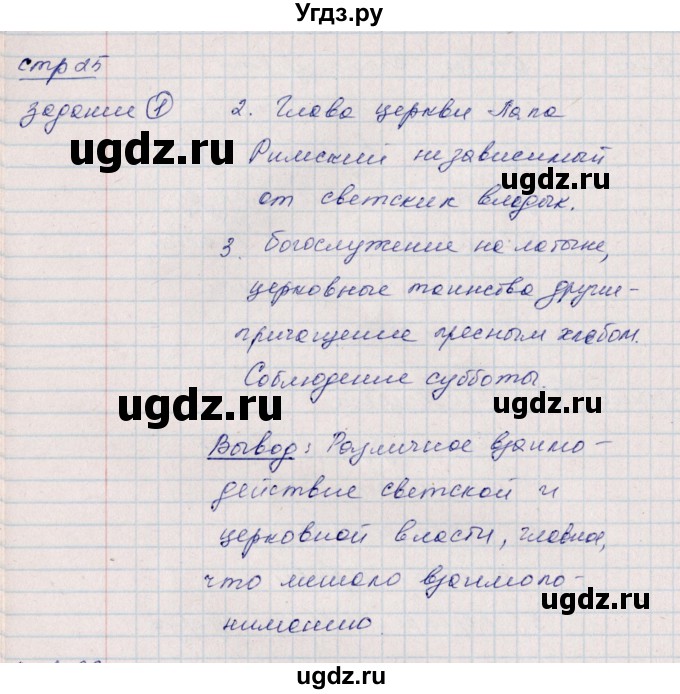 Угдз.ру
стр 25
задание 1 2. Глава церкви - Папа
Римский независимый
от светских владык.
3. Богослужение на латыне,
церковные таинства другие -
причащение пресным хлебом.
Соблюдение субботы.
Вывод: Различное взаимо-
действие светской и
церковной власти, главное,
что мешало взаимопо-
ниманию.
ugdz.ru
ugdz.ru
ugdz.ru
ugdz.ru
ugdz.ru
ugdz.ru
ugdz.ru